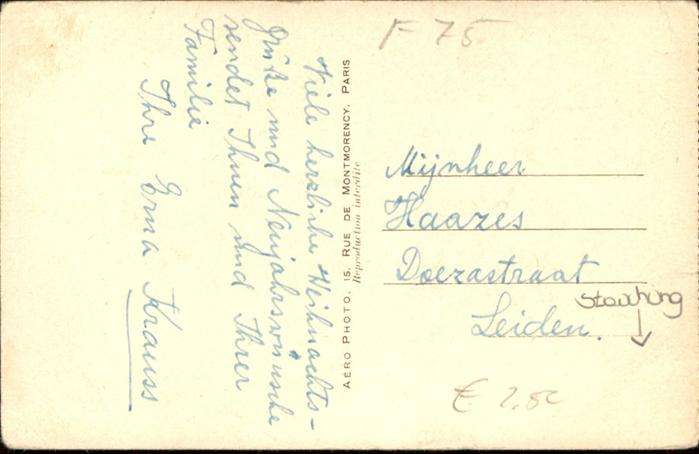 F 75
Viele herzliche Weihnachts-
Grüße und Neujahrswünsche
sendet Ihnen und Ihrer
Familie
Ihre Erna Krauss
AÉRO PHOTO, 15, RUE DE MONTMORENCY, PARIS
Reproduction interdite
Mijnheer
Haazes
Doezastraat
Leiden.
Stauchung
€ 2.50